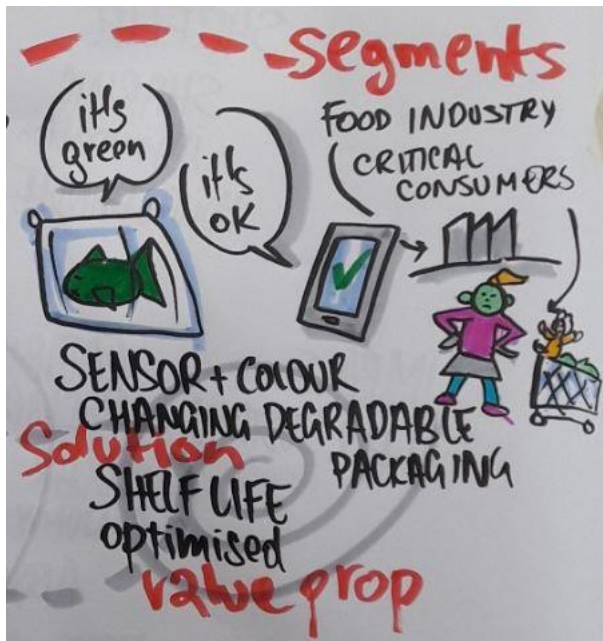 segments
it's
green
it's
OK
FOOD INDUSTRY
CRITICAL
CONSUMERS
SENSOR + COLOUR
CHANGING DEGRADABLE
PACKAGING
Solution
SHELF LIFE
optimised
value prop